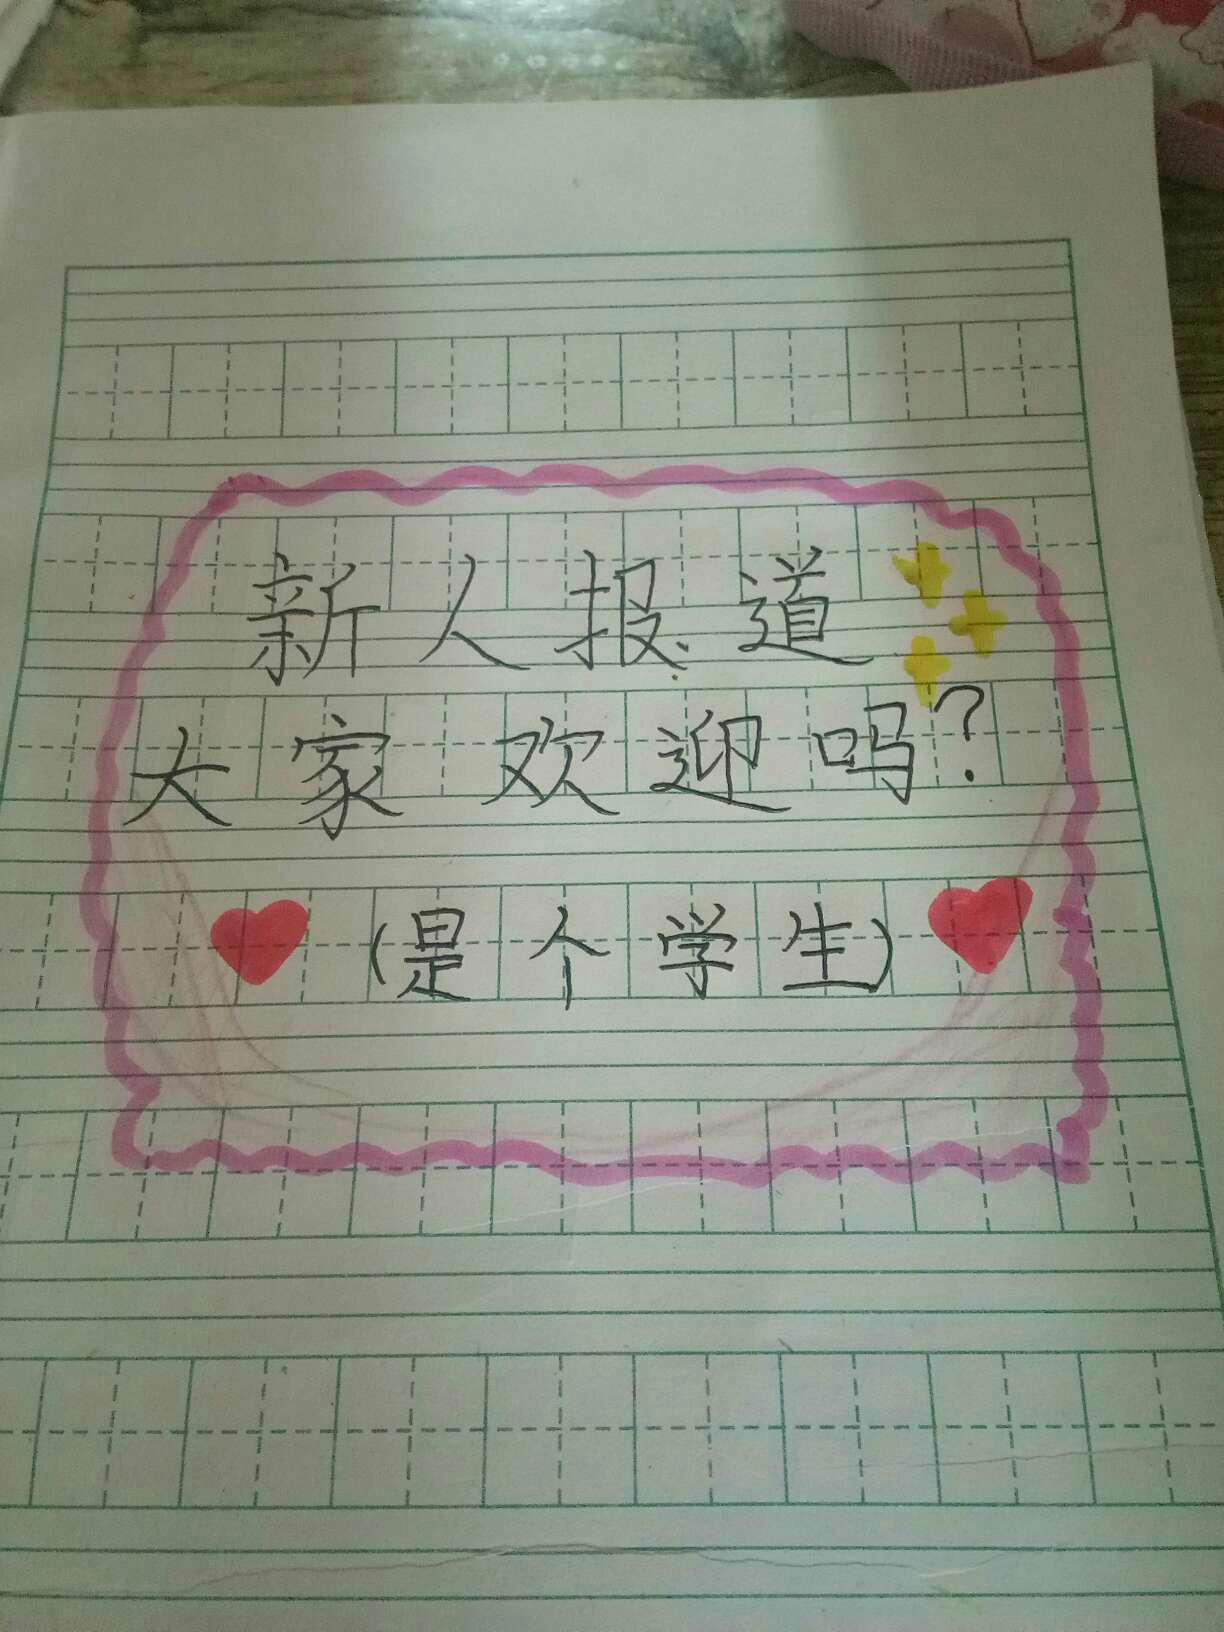 新人报道
大家欢迎吗?
(是个学生)